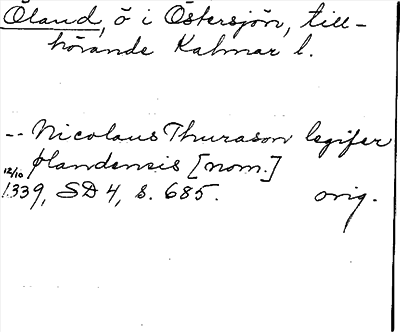 Öland, ö i Östersjön, till-
hörande Kalmar l.
-- Nicolaus Thurason legifer
ølandensis [nom.]
12/10
1339, SD 4, s. 685. orig.